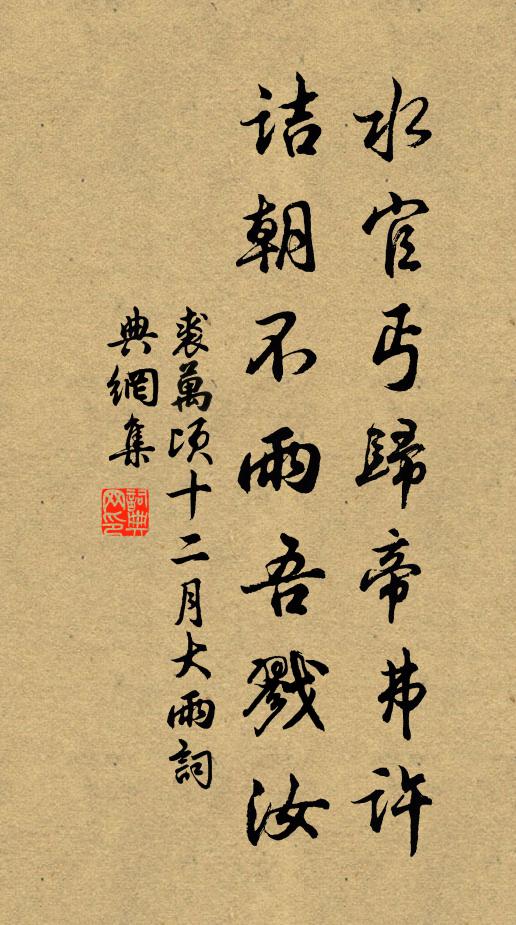 水官丐歸帝弗許
詰朝不雨吾戮汝
裘萬頃十二月大雨詞
典網集
詞典
网印